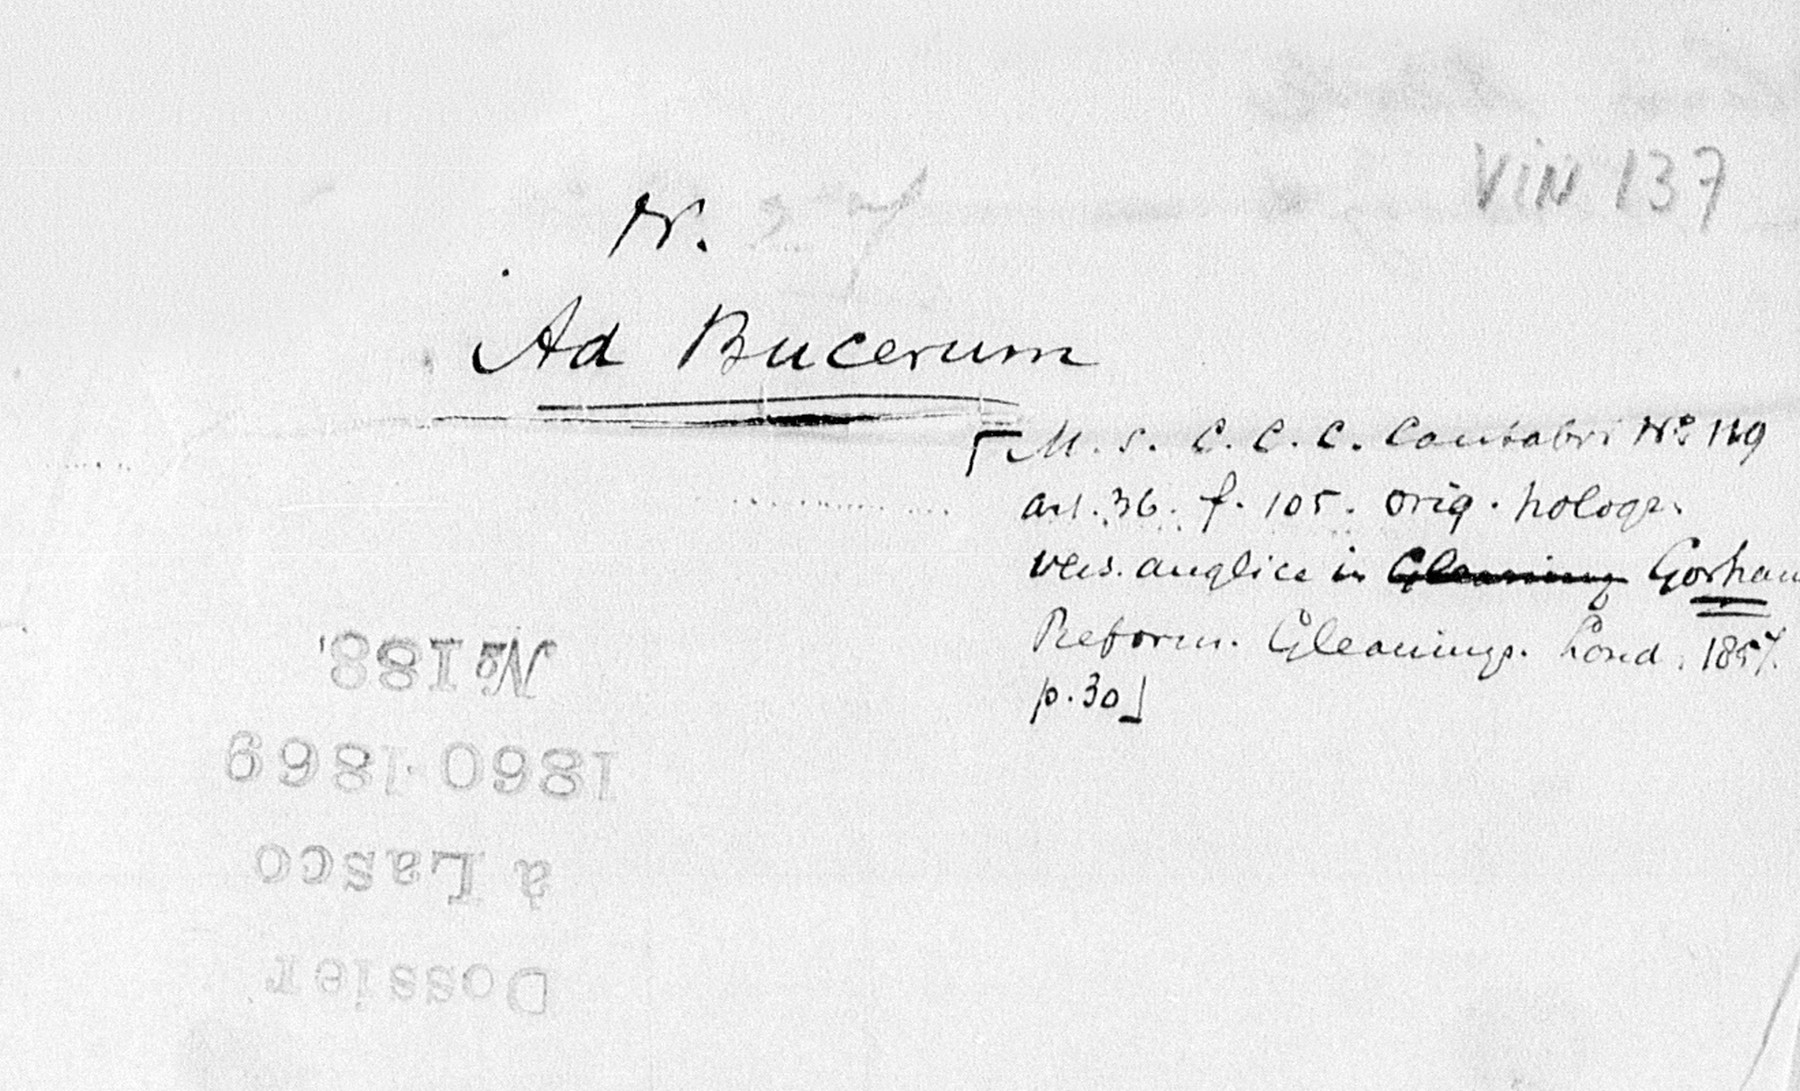 VIN 137
N.
Ad Bucerum
⌈M. S. C. C. C. Cantabri Nº 119
art. 36. f. 105. orig. hologr.
vers. anglice in Gleaning Gorham
Reform. Gleanings. Lond. 1857.
p. 30⌋
Dossier
à Lasco
1860-1869
№ 188.